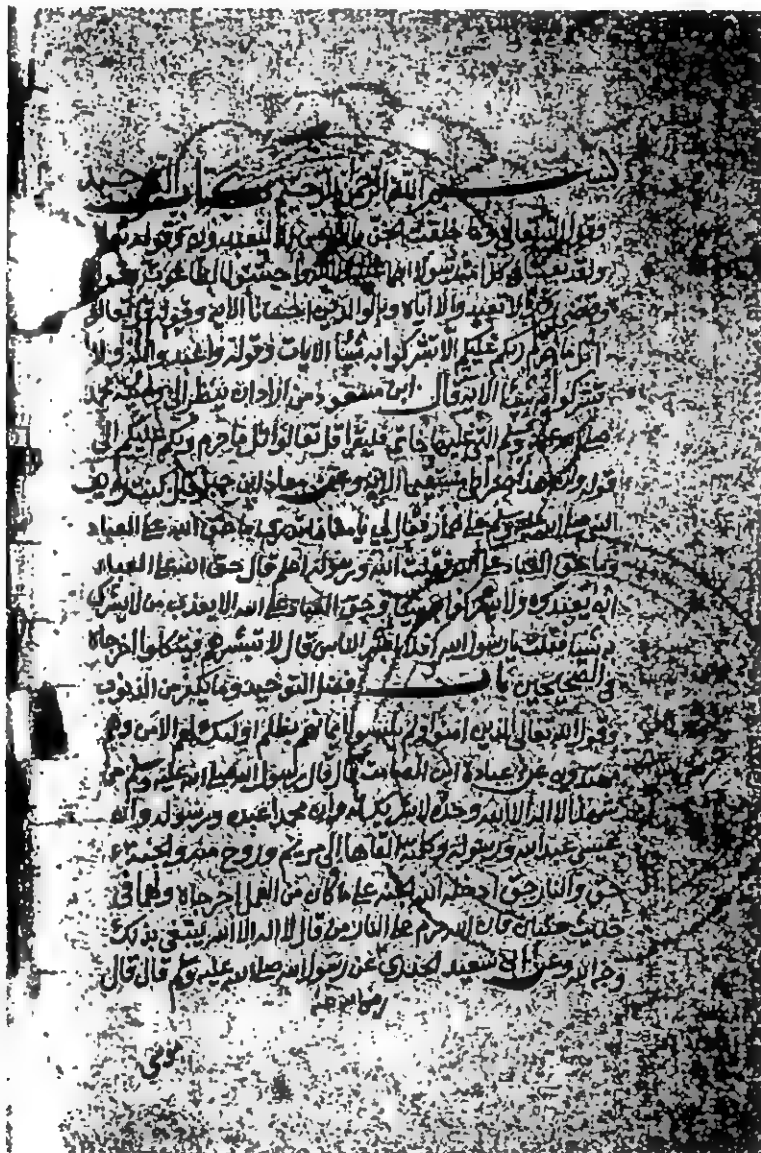 بسم الله الرحمن الرحيم كتاب التوحيد
وقول الله تعالى وما خلقت الجن والانس الا ليعبدون وقوله تعالى
ولقد بعثنا في كل امة رسولا ان اعبدوا الله واجتنبوا الطاغوت وقوله
وقضى ربك الا تعبدوا الا اياه وبالوالدين احسانا الاية وقوله قل تعالوا
اتل ما حرم ربكم عليكم الا تشركوا به شيئا الايات وقوله واعبدوا الله ولا
تشركوا به شيئا الاية قال ابن مسعود من اراد ان ينظر الى وصية محمد
صلى الله عليه وسلم التي عليها خاتمه فليقرا قل تعالوا اتل ما حرم ربكم عليكم الى
قوله وان هذا صراطي مستقيما الاية وعن معاذ ابن جبل قال كنت رديف
النبي صلى الله عليه وسلم على حمار فقال لي يا معاذ اتدري ما حق الله على العباد
وما حق العباد على الله فقلت الله ورسوله اعلم قال حق الله على العباد
ان يعبدوه ولا يشركوا به شيئا وحق العباد على الله الا يعذب من لا يشرك
به شيئا فقلت يا رسول الله افلا ابشر الناس قال لا تبشرهم فيتكلوا اخرجاه
في الصحيحين باب فضل التوحيد وما يكفر من الذنوب
وقول الله تعالى الذين امنوا ولم يلبسوا ايمانهم بظلم اولئك لهم الامن وهم
مهتدون عن عبادة ابن الصامت قال قال رسول الله صلى الله عليه وسلم من
شهد ان لا اله الا الله وحده لا شريك له وان محمدا عبده ورسوله وان
عيسى عبد الله ورسوله وكلمته القاها الى مريم وروح منه والجنة
حق والنار حق ادخله الله الجنة على ما كان من العمل اخرجاه ولهما في
حديث عتبان فان الله حرم على النار من قال لا اله الا الله يبتغي بذلك
وجه الله وعن ابي سعيد الخدري عن رسول الله صلى الله عليه وسلم قال قال
رضي الله عنه
موسى